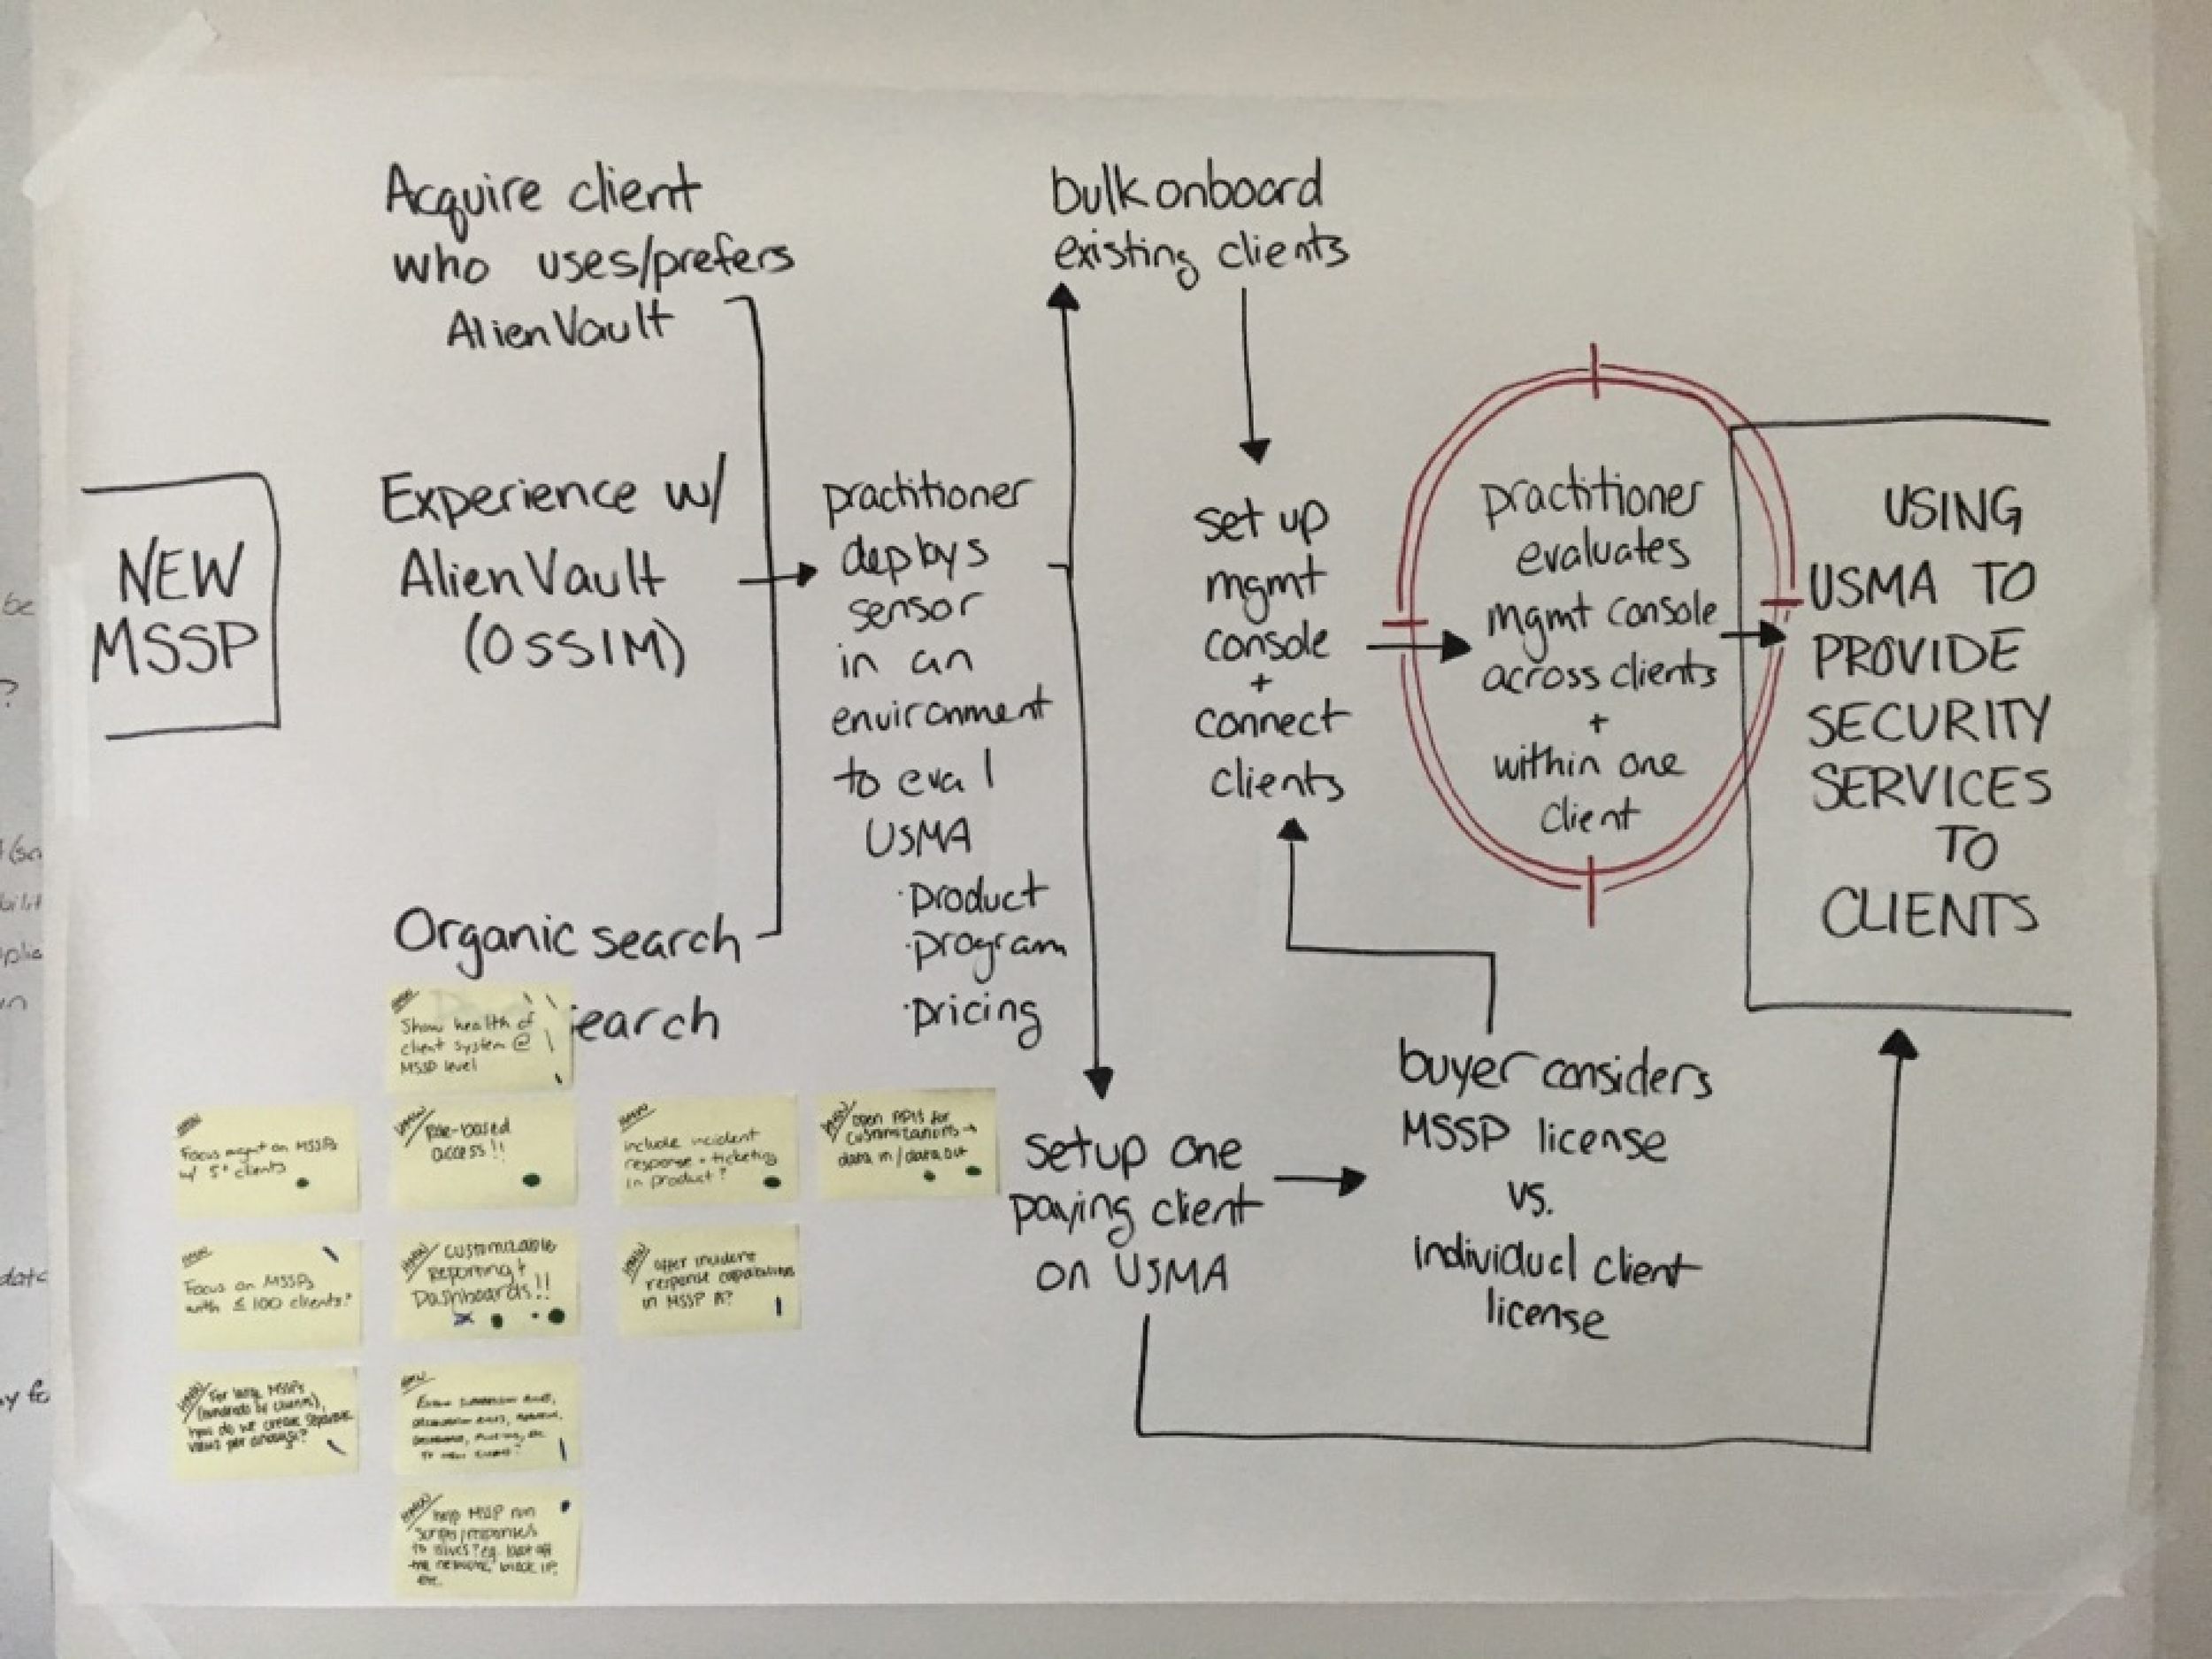 Acquire client
who uses/prefers
AlienVault
bulk onboard
existing clients
NEW
MSSP
Experience w/
AlienVault
(OSSIM)
Organic search
earch
practitioner
deploys
sensor
in an
environment
to eval
USMA
·product
·program
·pricing
set up
mgmt
console
+
connect
clients
practitioner
evaluates
mgmt console
across clients
+
within one
client
USING
USMA TO
PROVIDE
SECURITY
SERVICES
TO
CLIENTS
setup one
paying client
on USMA
buyer considers
MSSP license
vs.
individual client
license
HMW
Show health of
client system @
MSSP level
HMW
Focus mgmt on MSSPs
w/ 5+ clients
HMW
Role-based
access!!
HMW
include incident
response + ticketing
in product?
HMW
open APIs for
customizations →
data in/data out
HMW
Focus on MSSPs
with ≤ 100 clients?
HMW
customizable
Reporting +
Dashboards!!
HMW
offer incident
response capabilities
in MSSP
HMW
For large MSSPs
(hundreds of clients),
how do we create separate
views per analyst?
HMW
to new clients?
HMW
help MSSP run
scripts/responses
to issues? eg. boot off
the network, block IP,
etc.
be
?
data
y fo